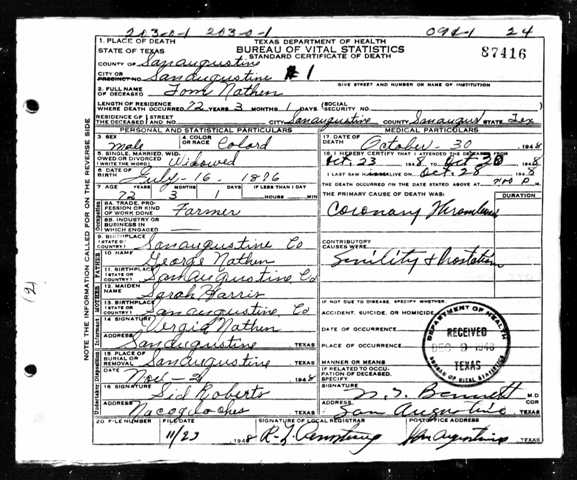 203-0-1 203-0-1 094-1 24
1. PLACE OF DEATH
TEXAS DEPARTMENT OF HEALTH
STATE OF TEXAS
BUREAU OF VITAL STATISTICS
STANDARD CERTIFICATE OF DEATH
87416
COUNTY OF Sanaugustine
CITY OR PRECINCT NO. Sanaugustine #1
GIVE STREET AND NUMBER OR NAME OF INSTITUTION
2. FULL NAME OF DECEASED Tom Nathen
LENGTH OF RESIDENCE WHERE DEATH OCCURRED 72 YEARS 3 MONTHS 1 DAYS (SOCIAL SECURITY NO.)
RESIDENCE OF THE DECEASED STREET AND NO. CITY Sanaugustine COUNTY Sanaugus STATE Tex
PERSONAL AND STATISTICAL PARTICULARS
3. SEX male
4. COLOR OR RACE Colard
5. SINGLE, MARRIED, WIDOWED OR DIVORCED (WRITE THE WORD) Widowed
6. DATE OF BIRTH July-16-1876
7. AGE 72 YEARS 3 MONTHS 1 DAYS IF LESS THAN 1 DAY HOURS MIN
8A. TRADE, PROFESSION OR KIND OF WORK DONE Farmer
8B. INDUSTRY OR BUSINESS IN WHICH ENGAGED
9. BIRTHPLACE (STATE OR COUNTRY) Sanaugustine Co
10. NAME George Nathen
11. BIRTHPLACE (STATE OR COUNTRY) Sanaugustine, Co
12. MAIDEN NAME Sarah Harris
13. BIRTHPLACE (STATE OR COUNTRY) Sanaugustine, Co
14. SIGNATURE Vergia Nathen
ADDRESS Sanaugustine TEXAS
15. PLACE OF BURIAL OR REMOVAL Sanaugustine TEXAS
DATE Nov-2 1948
16. SIGNATURE Sid Roberts
ADDRESS Nacogdoches TEXAS
MEDICAL PARTICULARS
17. DATE OF DEATH October-30 1948
18. I HEREBY CERTIFY THAT I ATTENDED THE DECEASED FROM
Oct. 23 1948 TO Oct 30 1948
I LAST SAW ALIVE ON Oct. 28 1948
THE DEATH OCCURRED ON THE DATE STATED ABOVE AT P M.
THE PRIMARY CAUSE OF DEATH WAS: DURATION
Coronary Thrombosis
CONTRIBUTORY CAUSES WERE:
Senility &
IF NOT DUE TO DISEASE, SPECIFY WHETHER:
ACCIDENT, SUICIDE, OR HOMICIDE
DATE OF OCCURRENCE
PLACE OF OCCURRENCE
MANNER OR MEANS
IF RELATED TO OCCUPATION OF DECEASED, SPECIFY
SIGNATURE Bennett M.D. COR
ADDRESS San Augustine TEXAS
DEPARTMENT OF HEALTH
RECEIVED
DEC 9 1948
TEXAS
BUREAU OF VITAL STATISTICS
20. FILE NUMBER
FILE DATE 11/23 1948
SIGNATURE OF LOCAL REGISTRAR
POSTOFFICE ADDRESS San Augustine TEXAS
NOTE THE INFORMATION CALLED FOR ON THE REVERSE SIDE
(2)